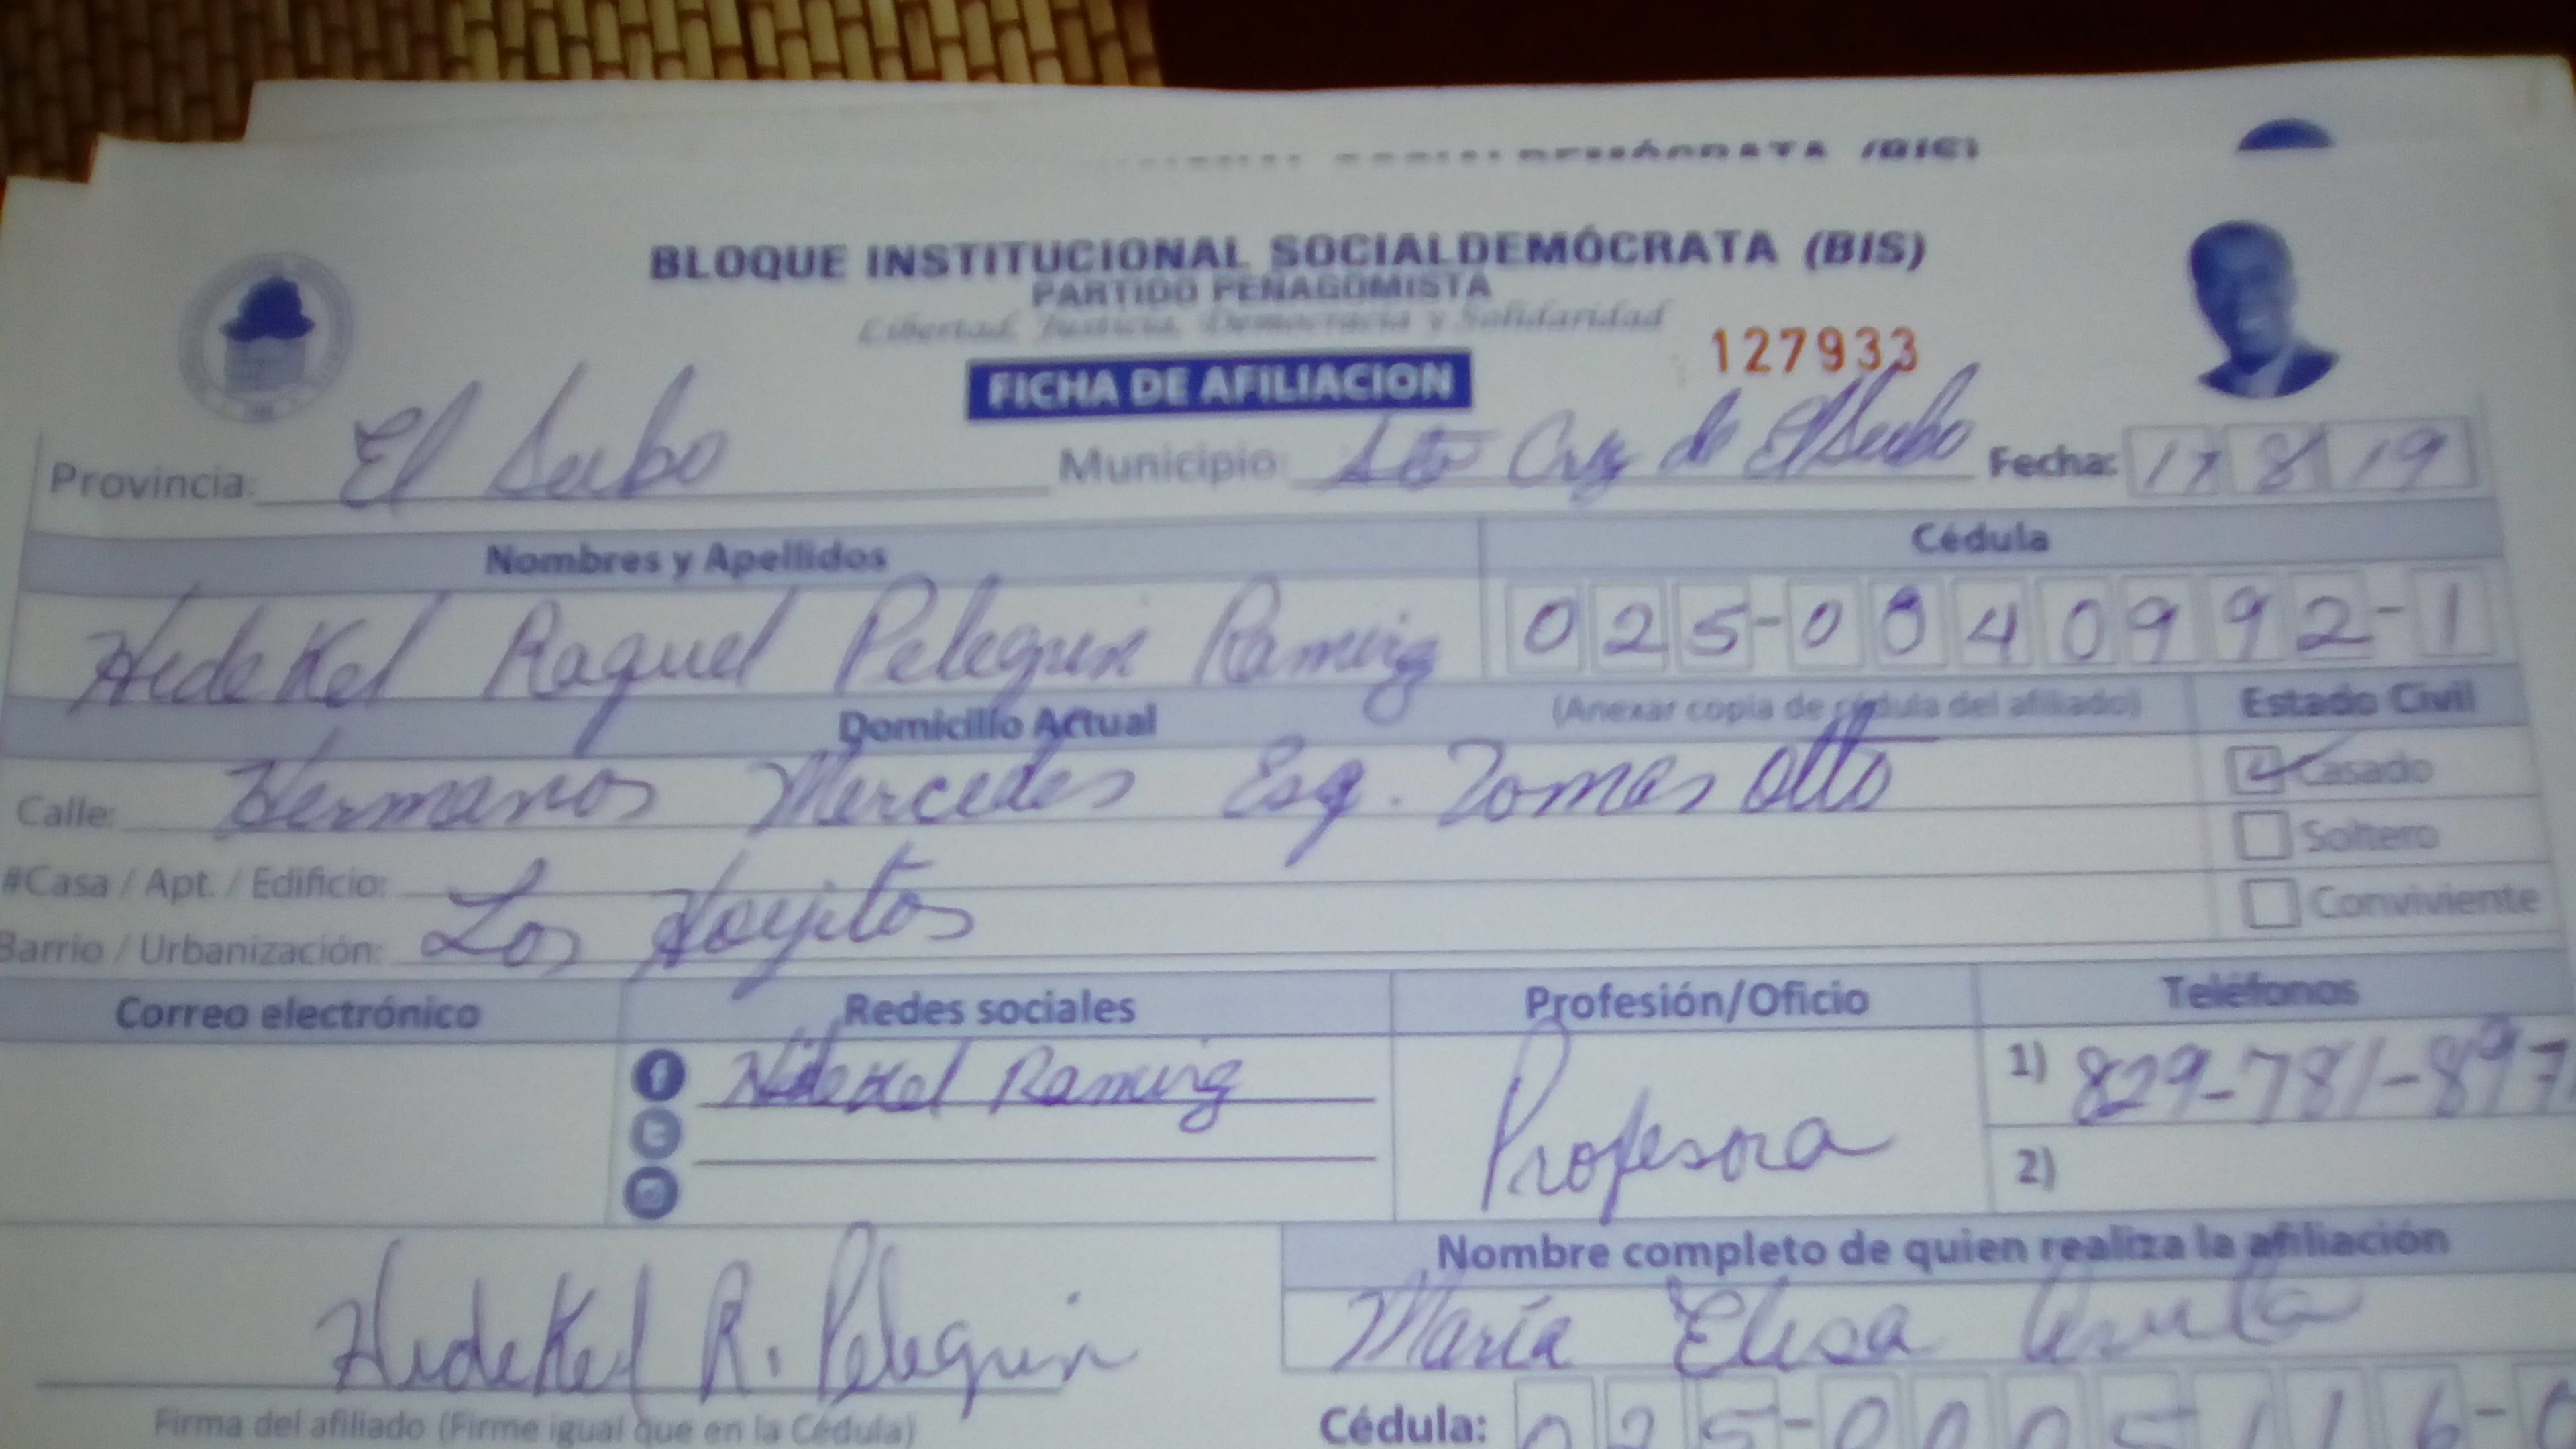 BLOQUE INSTITUCIONAL SOCIALDEMÓCRATA (BIS)
PARTIDO PEÑAGOMISTA
Libertad, Justicia, Democracia y Solidaridad
127933
FICHA DE AFILIACION
Provincia: El Seibo Municipio: Sto Cruz de El Seibo Fecha: 17 8 19
Nombres y Apellidos Cédula
Hidekel Raquel Peleguin Ramirez 025-0040992-1
Domicilio Actual (Anexar copia de cédula del afiliado) Estado Civil
Calle: Hermanos Mercedes Esq. Tomas Otto Casado
Soltero
#Casa / Apt. / Edificio:
Conviviente
Barrio / Urbanización: Los Hoyitos
Correo electrónico Redes sociales Profesión/Oficio Teléfonos
Hidekel Ramirez Profesora 1) 829-781-897
2)
Nombre completo de quien realiza la afiliación
Hidekel R. Peleguin María Elisa
Firma del afiliado (Firme igual que en la Cédula) Cédula: 025-0005116-0